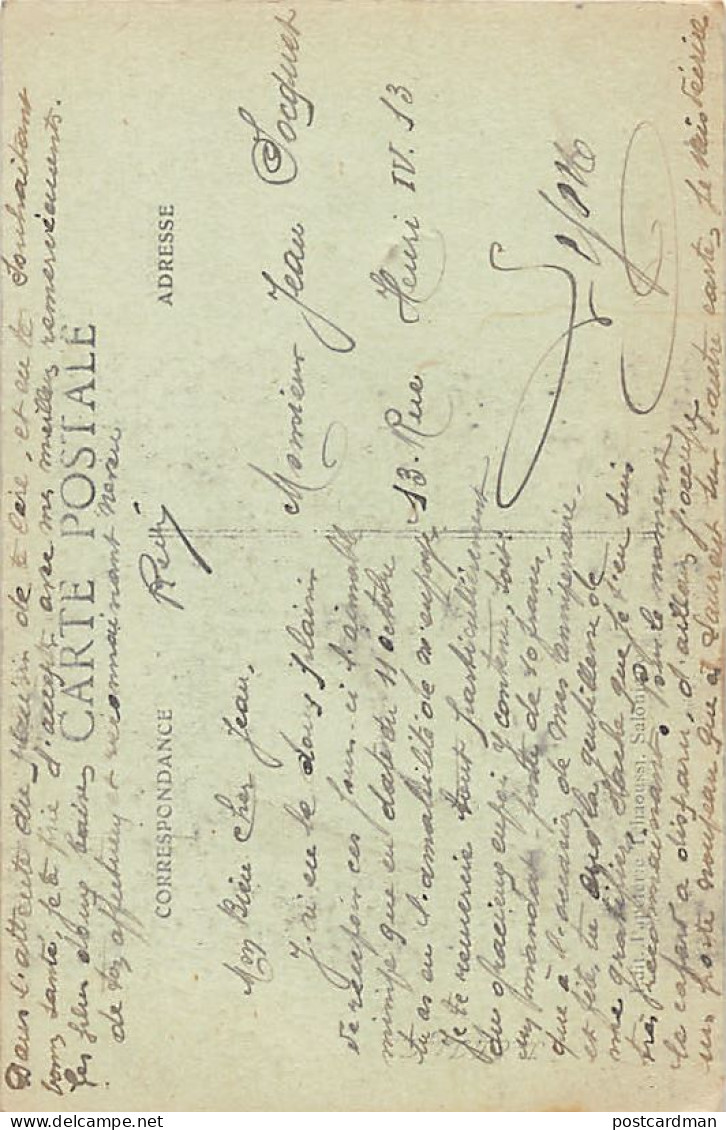 CARTE POSTALE
CORRESPONDANCE
ADRESSE
Mon Bien cher Jean,
J'ai eu le doux plaisir
de recevoir ces jours-ci l'aimable
missive que en date du 11 octobre
tu as eu l'amabilité de m'envoyer
Je te remercie tout particulièrement
du gracieux envoi y contenu, soit
un mandat-poste de 10 francs,
que à l'occasion de mes anniversaire
et fête, tu avais la gentillesse de
me gratifier. Sache que je t'en suis
très reconnaissant, pour le moment
le cafard a disparu, d'ailleurs j'occupe
un poste nouveau que à Laurent sur l'autre carte, je vais décrire
Dans l'attente du plaisir de te lire, et en te souhaitant
bonne santé, je te prie d'accepter avec mes meilleurs remerciements.
les plus doux baisers
de ton affectueux et reconnaissant neveu
Monsieur Jean Socquet
13. Rue Henri IV. 13
Lyon
Edit. Papeterie Salonique
postcardman